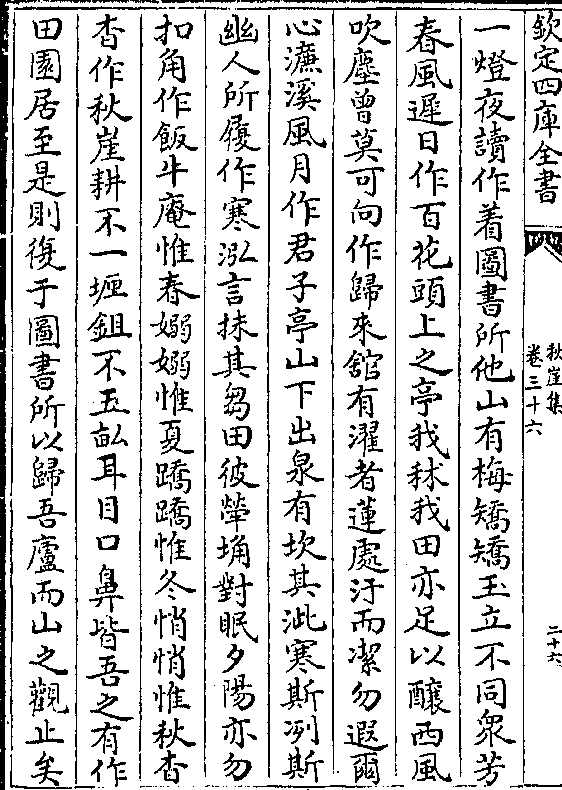 欽定四庫全書
秋崖集
卷三十六
二十六
一燈夜讀作着圖書所他山有梅矯矯玉立不同衆芳
春風遲日作百花頭上之亭我秫我田亦足以釀西風
吹塵曽莫可向作歸來舘有濯者蓮處汙而潔勿遐爾
心濂溪風月作君子亭山下出泉有坎其泚寒斯冽斯
幽人所屐作寒泓言抹其芻田彼犖埆對眠夕陽亦勿
扣角作飯牛庵惟春嫋嫋惟夏蹻蹻惟冬悄悄惟秋杳
杳作秋崖耕不一堰鉏不五畝耳目口鼻皆吾之有作
田園居至是則復于圖書所以歸吾廬而山之觀止矣